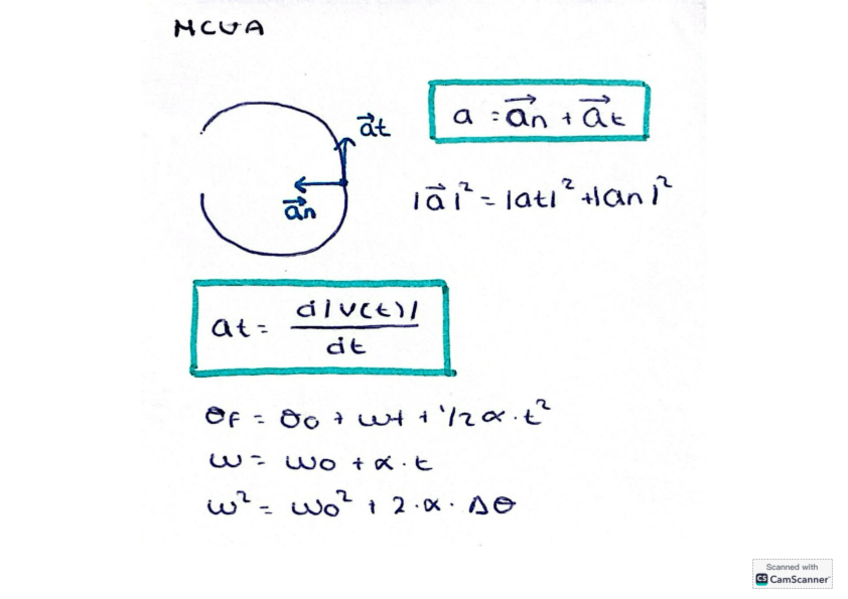 MCUA
a⃗t
a = a⃗n + a⃗t
a⃗n
|a⃗|² = |at|² + |an|²
at = d|v(t)| / dt
θF = θo + wt + 1/2 α · t²
w = wo + α · t
w² = wo² + 2 · α · Δθ
Scanned with
CS CamScanner